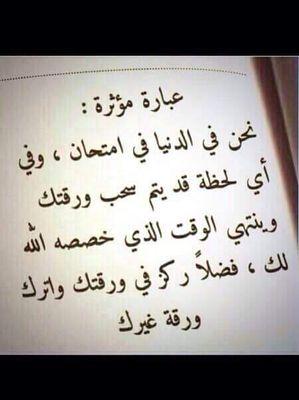 عبارة مؤثرة :
نحن في الدنيا في امتحان ، وفي
أي لحظة قد يتم سحب ورقتك
وينتهي الوقت الذي خصصه الله
لك ، فضلاً ركز في ورقتك واترك
ورقة غيرك